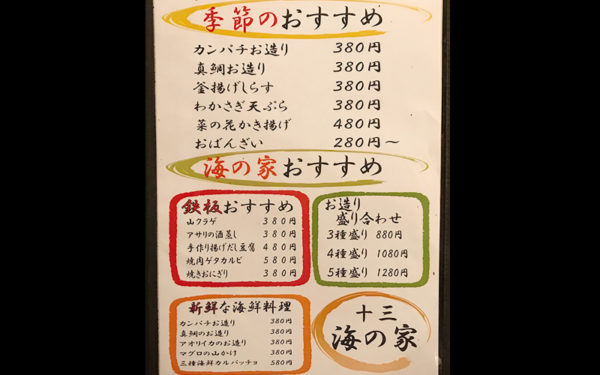 季節のおすすめ
カンパチお造り 380円
真鯛お造り 380円
釜揚げしらす 380円
わかさぎ天ぷら 380円
菜の花かき揚げ 480円
おばんざい 280円～
海の家おすすめ
鉄板おすすめ
山クラゲ 380円
アサリの酒蒸し 380円
手作り揚げだし豆腐 480円
焼肉ゲタカルビ 580円
焼きおにぎり 380円
お造り
盛り合わせ
3種盛り 880円
4種盛り 1080円
5種盛り 1280円
新鮮な海鮮料理
カンパチお造り 380円
真鯛のお造り 380円
アオリイカのお造り 380円
マグロの山かけ 380円
三種海鮮カルパッチョ 580円
十三
海の家